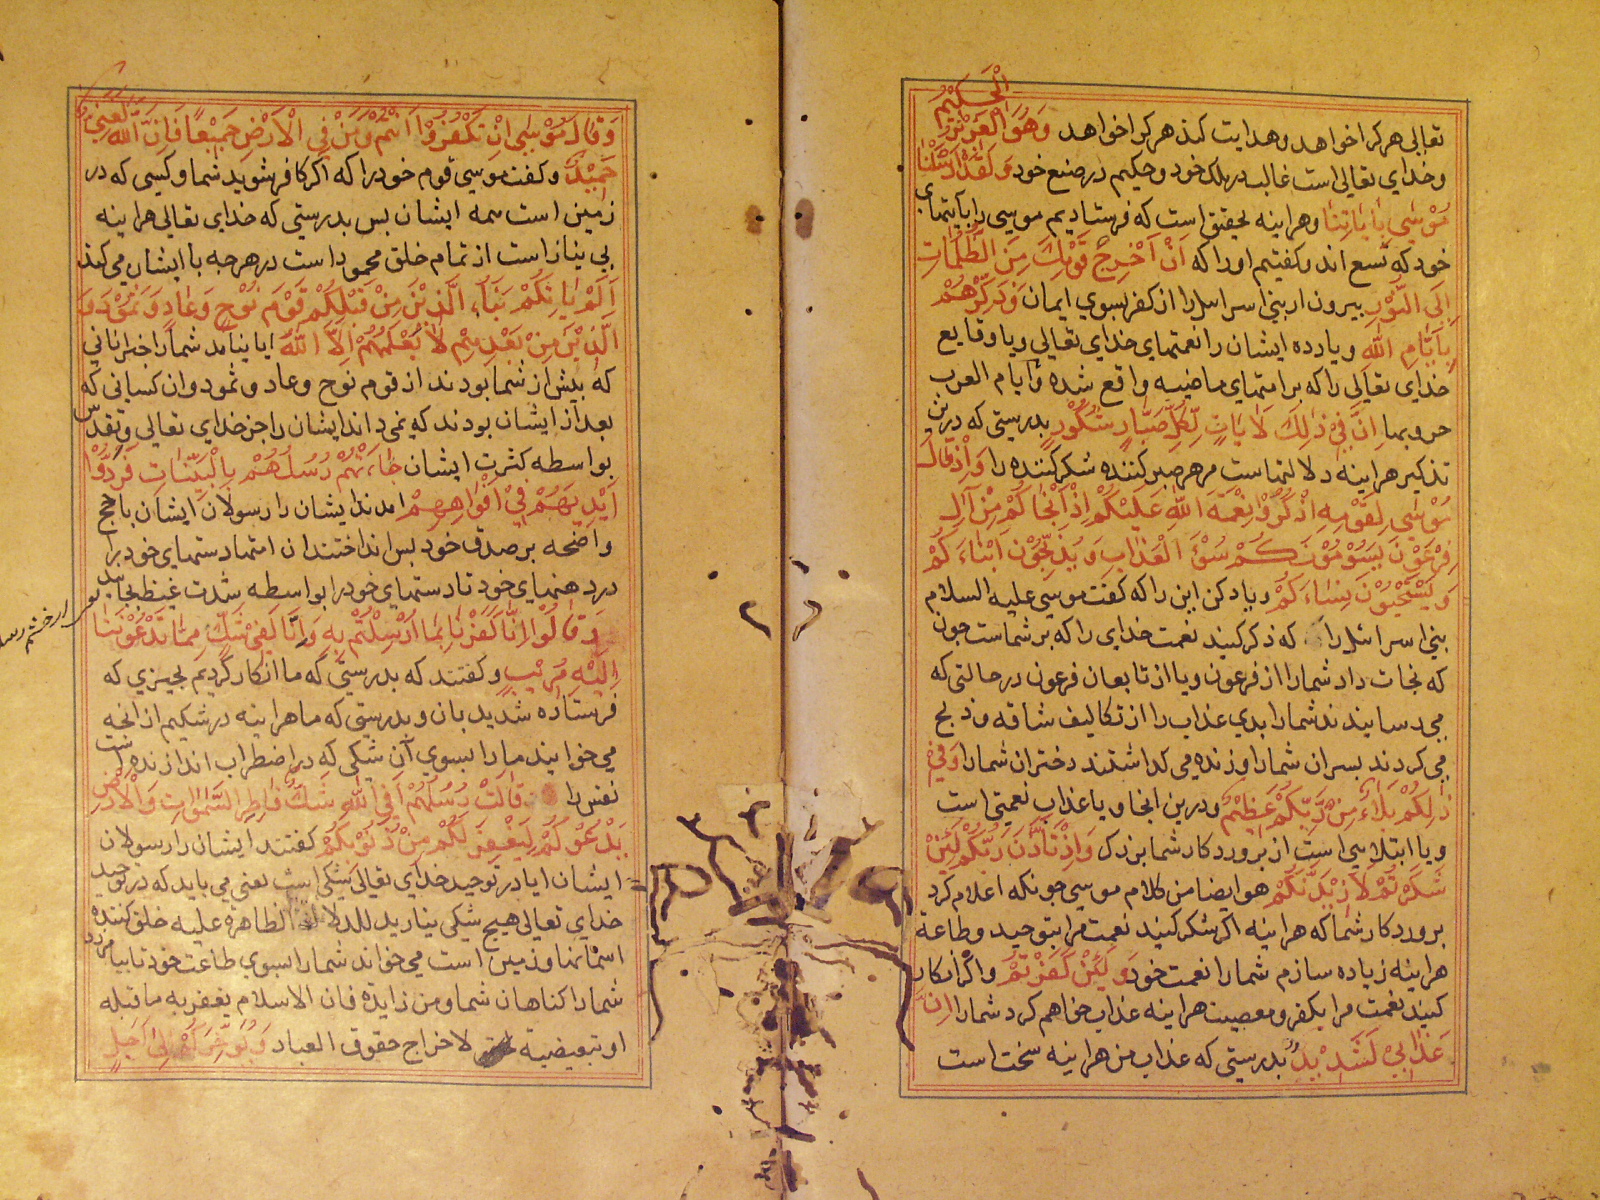 الْحَكِيْم
تعالی هر کرا خواهد و هدایت کند هر کرا خواهد وَهُوَ الْعَزِيْزُ
و خدای تعالی است غالب در ملک خود و حکیم در صنع خود وَلَقَدْ اَرْسَلْنَا
مُوْسٰی بِاٰيَاتِنَا و هراینه بتحقیق است که فرستادیم موسی را بآیتهای
خود که تسع اند و کفتیم او را که اَنْ اَخْرِجْ قَوْمَكَ مِنَ الظُّلُمَاتِ
اِلَی النُّوْرِ بیرون ار بنی اسرائیل را از کفر بسوی ایمان وَذَكِّرْهُمْ
بِاَيَّامِ اللّٰهِ و یاد ده ایشان را نعمتهای خدای تعالی و یا وقایع
خدای تعالی را که بر امتهای ماضیه واقع شده و ایام العرب
حروبها اِنَّ فِيْ ذٰلِكَ لَاٰيَاتٍ لِّكُلِّ صَبَّارٍ شَكُوْرٍ بدرستی که درین
تذکیر هراینه دلالتهاست مر هر صبر کننده شکر کننده را وَاِذْ قَالَ
مُوْسٰی لِقَوْمِهِ اذْكُرُوْا نِعْمَةَ اللّٰهِ عَلَيْكُمْ اِذْ اَنْجَاكُمْ مِنْ اٰلِ
فِرْعَوْنَ يَسُوْمُوْنَكُمْ سُوْءَ الْعَذَابِ وَيُذَبِّحُوْنَ اَبْنَاءَكُمْ
وَيَسْتَحْيُوْنَ نِسَاءَكُمْ و یاد کن این را که کفت موسی علیه السلام
بنی اسرائیل را که ذکر کنید نعمت خدای را که بر شماست چون
که نجات داد شما را از فرعون و یا از تابعان فرعون در حالتی که
می رسانیدند شما را بدی عذاب را از تکالیف شاقه و ذبح
می کردند پسران شما را و زنده می کذاشتند دختران شما را وَفِيْ
ذٰلِكُمْ بَلَاءٌ مِنْ رَّبِّكُمْ عَظِيْمٌ و درین انجا و یا عذاب نعمتی است
و یا ابتلایی است از پروردکار شما بزرک وَاِذْ تَاَذَّنَ رَبُّكُمْ لَئِنْ
شَكَرْتُمْ لَاَزِيْدَنَّكُمْ هو ایضا من کلام موسی چونکه اعلام کرد
پروردکار شما که هراینه اکر شکر کنید نعمت مرا بتوحید و طاعة
هراینه زیاده سازم شما را نعمت خود وَلَئِنْ كَفَرْتُمْ و اکر انکار
کنید نعمت مرا بکفر و معصیت هراینه عذاب خواهم کرد شما را اِنَّ
عَذَابِيْ لَشَدِيْدٌ بدرستی که عذاب من هراینه سخت است
وَقَالَ مُوْسٰی اِنْ تَكْفُرُوْا اَنْتُمْ وَمَنْ فِی الْاَرْضِ جَمِيْعًا فَاِنَّ اللّٰهَ لَغَنِيٌّ
حَمِيْدٌ و کفت موسی قوم خود را که اکر کافر شوید شما و کسی که در
زمین است همه ایشان پس بدرستی که خدای تعالی هراینه
بی نیاز است از تمام خلق محمود است در هر چه با ایشان می کند
اَلَمْ يَاْتِكُمْ نَبَاُ الَّذِيْنَ مِنْ قَبْلِكُمْ قَوْمِ نُوْحٍ وَعَادٍ وَثَمُوْدَ وَ
الَّذِيْنَ مِنْ بَعْدِهِمْ لَا يَعْلَمُهُمْ اِلَّا اللّٰهُ ایا نیامد شما را خبر انانی
که پیش از شما بودند از قوم نوح و عاد و ثمود و ان کسانی که
بعد از ایشان بودند که نمی داند ایشان را جز خدای تعالی و تقدس
بواسطه کثرت ایشان جَاءَتْهُمْ رُسُلُهُمْ بِالْبَيِّنَاتِ فَرَدُّوْا
اَيْدِيَهُمْ فِيْ اَفْوَاهِهِمْ امدند ایشان را رسولان ایشان با حجج
واضحه بر صدق خود پس انداختند ان امتها دستهای خود را
در دهنهای خود تا دستهای خود را بواسطه شدت غیظ بخایند
وَقَالُوْا اِنَّا كَفَرْنَا بِمَا اُرْسِلْتُمْ بِهِ وَاِنَّا لَفِيْ شَكٍّ مِمَّا تَدْعُوْنَنَا
اِلَيْهِ مُرِيْبٍ و کفتند که بدرستی که ما انکار کردیم بچیزی که
فرستاده شدید بان و بدرستی که ما هراینه در شکیم از انچه
می خوانید ما را بسوی آن شکی که در اضطراب اندازنده است
نفس را قَالَتْ رُسُلُهُمْ اَفِی اللّٰهِ شَكٌّ فَاطِرِ السَّمٰوَاتِ وَالْاَرْضِ
يَدْعُوْكُمْ لِيَغْفِرَ لَكُمْ مِنْ ذُنُوْبِكُمْ کفتند ایشان را رسولان
ایشان ایا در توحید خدای تعالی شکی است یعنی می باید که در توحید
خدای تعالی هیچ شکی نیارید للدلائل الظاهرة علیه خلق کننده
اسمانها و زمین است می خواند شما را بسوی طاعت خود تا بیامرزد
شما را کناهان شما و من زایدة فان الاسلام یغفر به ما قبله
او تبعیضیة لاخراج حقوق العباد وَيُؤَخِّرَكُمْ اِلٰی اَجَلٍ
از خشم